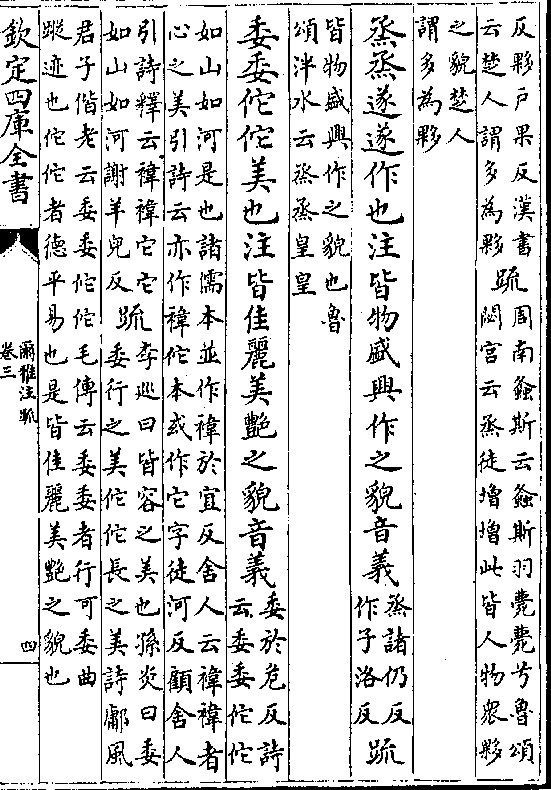 反夥戸果反漢書
云楚人謂多為夥疏周南螽斯云螽斯羽薨薨兮魯頌
閟宮云烝徒增增此皆人物衆夥
之貌楚人
謂多為夥
烝烝遂遂作也注皆物盛興作之貌音義烝諸仍反
作子洛反疏
皆物盛興作之貌也魯
頌泮水云烝烝皇皇
委委佗佗美也注皆佳麗美艷之貌音義委於危反詩
云委委佗佗
如山如河是也諸儒本並作禕於宜反舍人云禕禕者
心之美引詩云亦作禕佗本或作它字徒河反顧舍人
引詩釋云禕禕它它
如山如河謝羊兒反疏李巡曰皆容之美也孫炎曰委
委行之美佗佗長之美詩鄘風
君子偕老云委委佗佗毛傳云委委者行可委曲
蹤迹也佗佗者德平易也是皆佳麗美艷之貌也
欽定四庫全書
爾雅注疏
卷三
四